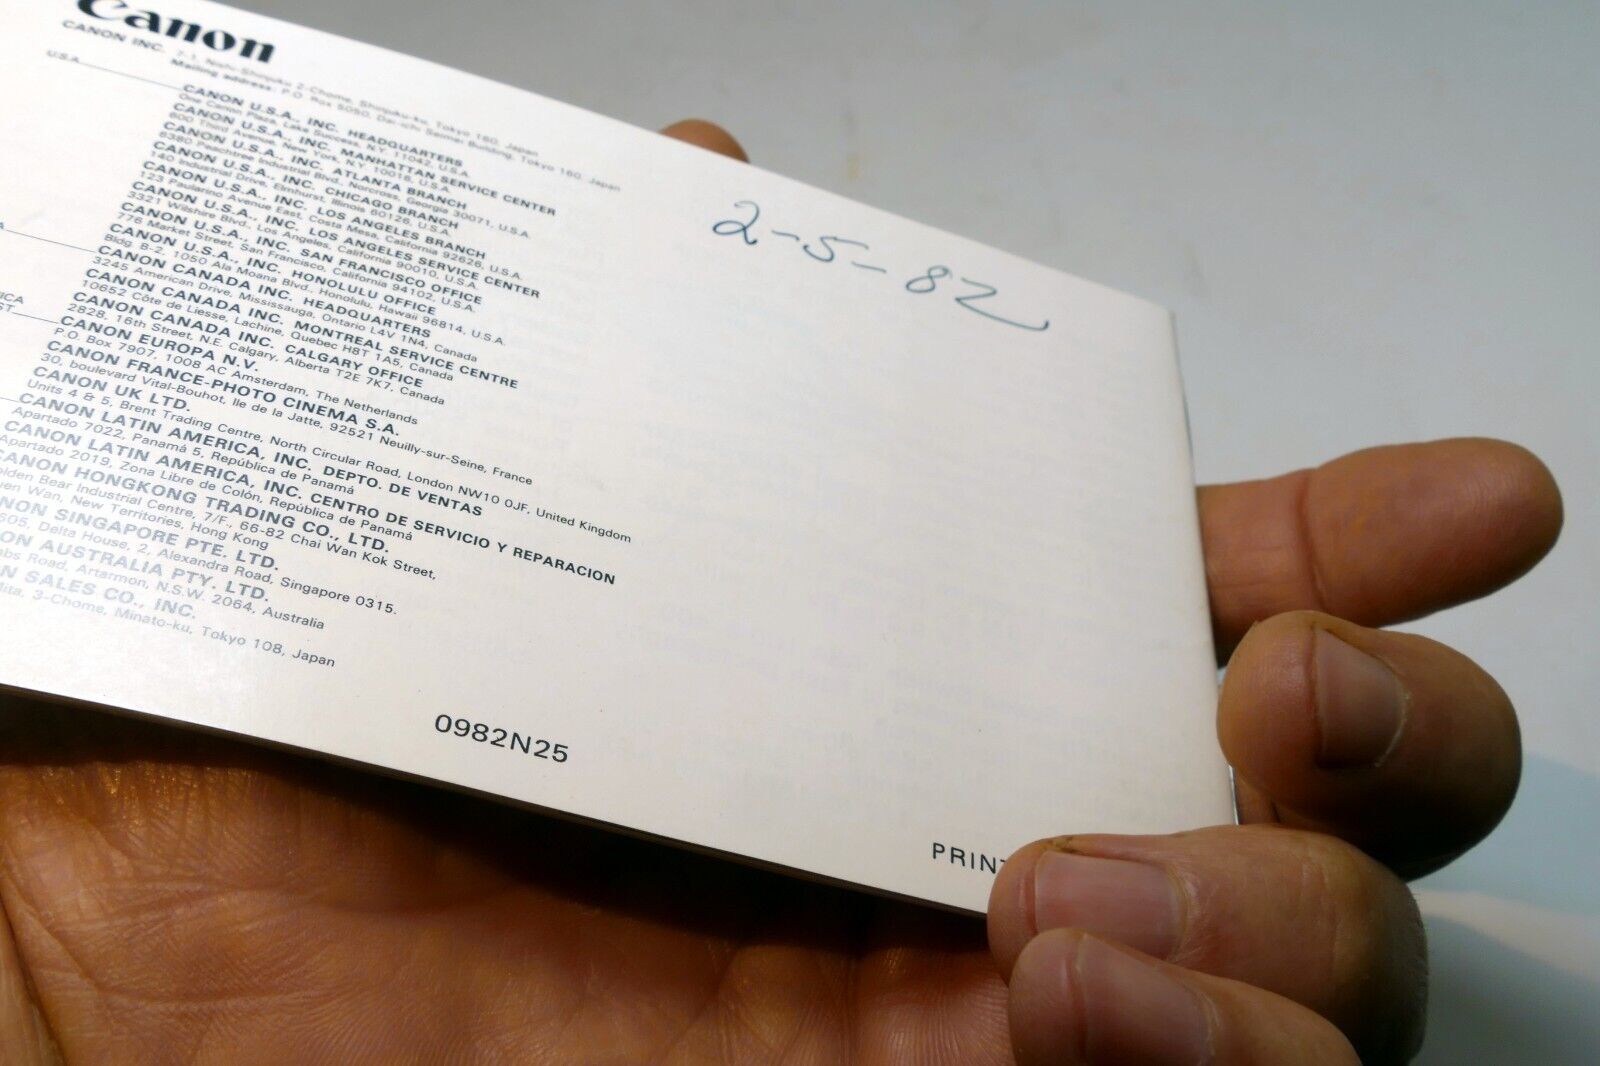 Canon
CANON INC. 7-1, Nishi-Shinjuku 2-Chome, Shinjuku-ku, Tokyo 160, Japan
Mailing address: P.O. Box 5050, Dai-ichi Seimei Building, Tokyo 160, Japan
U.S.A.
CANON U.S.A., INC. HEADQUARTERS
One Canon Plaza, Lake Success, N.Y. 11042, U.S.A.
CANON U.S.A., INC. MANHATTAN SERVICE CENTER
600 Third Avenue, New York, N.Y. 10016, U.S.A.
CANON U.S.A., INC. ATLANTA BRANCH
6380 Peachtree Industrial Blvd., Norcross, Georgia 30071, U.S.A.
CANON U.S.A., INC. CHICAGO BRANCH
140 Industrial Drive, Elmhurst, Illinois 60126, U.S.A.
CANON U.S.A., INC. LOS ANGELES BRANCH
123 Paularino Avenue East, Costa Mesa, California 92626, U.S.A.
CANON U.S.A., INC. LOS ANGELES SERVICE CENTER
3321 Wilshire Blvd., Los Angeles, California 90010, U.S.A.
CANON U.S.A., INC. SAN FRANCISCO OFFICE
776 Market Street, San Francisco, California 94102, U.S.A.
CANON U.S.A., INC. HONOLULU OFFICE
Bldg. B-2, 1050 Ala Moana Blvd., Honolulu, Hawaii 96814, U.S.A.
CANON CANADA INC. HEADQUARTERS
3245 American Drive, Mississauga, Ontario L4V 1N4, Canada
CANON CANADA INC. MONTREAL SERVICE CENTRE
10652 Côte de Liesse, Lachine, Quebec H8T 1A5, Canada
CANON CANADA INC. CALGARY OFFICE
2828, 16th Street, N.E. Calgary, Alberta T2E 7K7, Canada
CANON EUROPA N.V.
P.O. Box 7907, 1008 AC Amsterdam, The Netherlands
CANON FRANCE-PHOTO CINEMA S.A.
30, boulevard Vital-Bouhot, Ile de la Jatte, 92521 Neuilly-sur-Seine, France
CANON UK LTD.
Units 4 & 5, Brent Trading Centre, North Circular Road, London NW10 0JF, United Kingdom
CANON LATIN AMERICA, INC. DEPTO. DE VENTAS
Apartado 7022, Panamá 5, República de Panamá
CANON LATIN AMERICA, INC. CENTRO DE SERVICIO Y REPARACION
Apartado 2019, Zona Libre de Colón, República de Panamá
CANON HONGKONG TRADING CO., LTD.
olden Bear Industrial Centre, 7/F., 66-82 Chai Wan Kok Street,
en Wan, New Territories, Hong Kong
NON SINGAPORE PTE. LTD.
505, Delta House, 2, Alexandra Road, Singapore 0315.
ON AUSTRALIA PTY. LTD.
bs Road, Artarmon, N.S.W. 2064, Australia
N SALES CO., INC.
ita, 3-Chome, Minato-ku, Tokyo 108, Japan
2-5-82
0982N25
PRINT